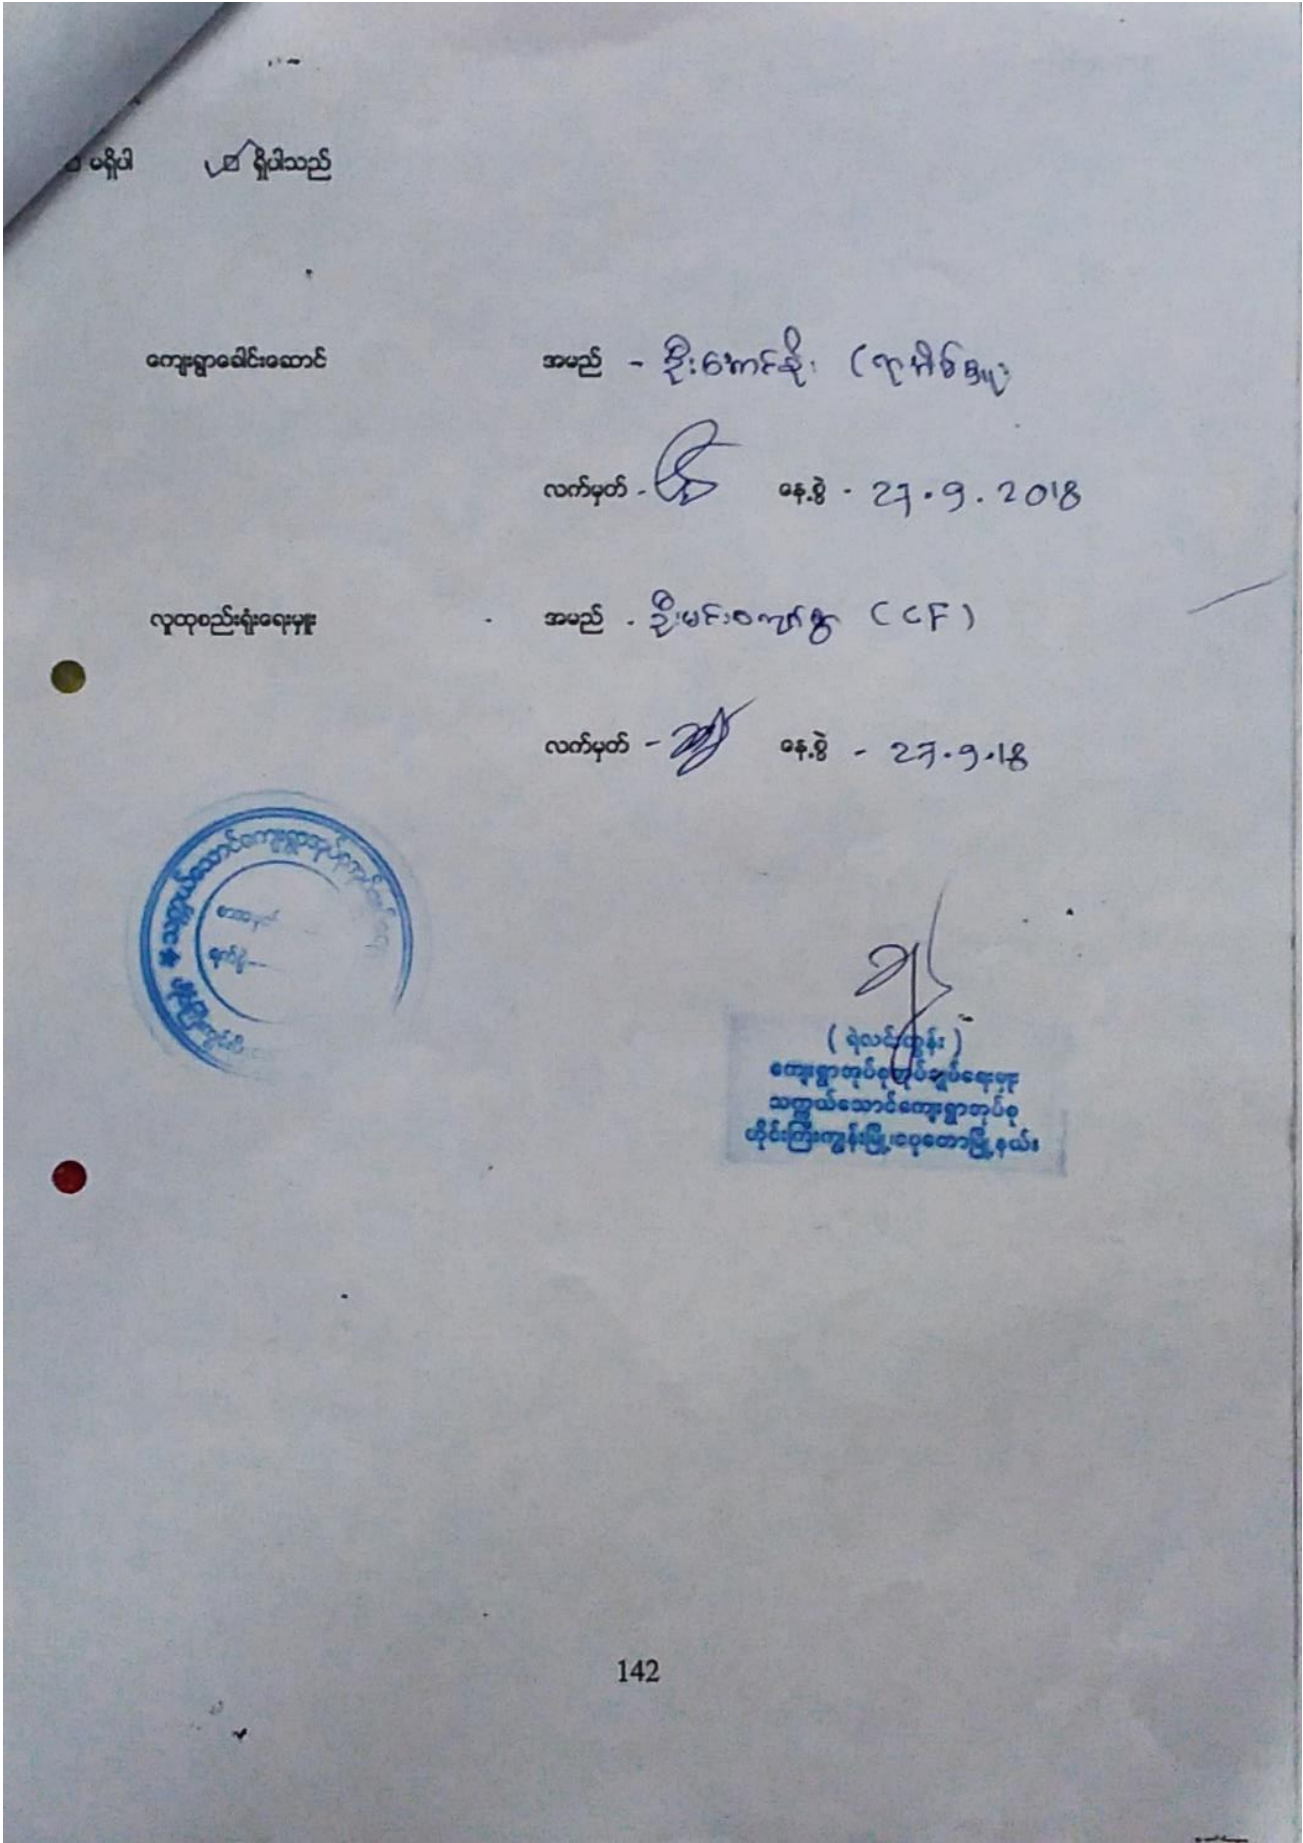 မရှိပါ ရှိပါသည်
ကျေးရွာခေါင်းဆောင် အမည် - ဦးအောင်စိုး
လက်မှတ် - နေ့စွဲ - 27.9.2018
လူထုစည်းရုံးရေးမှူး - အမည် - ဦးမင်းဇော်ထွန်း (CF)
လက်မှတ် - နေ့စွဲ - 27.9.18
သက္ကယ်သောင်ကျေးရွာအုပ်စုအုပ်ချုပ်ရေး
စာအမှတ်
ရက်စွဲ
( ရဲလင်းထွန်း )
ကျေးရွာအုပ်စုအုပ်ချုပ်ရေးမှူး
သက္ကယ်သောင်ကျေးရွာအုပ်စု
ဟိုင်းကြီးကျွန်းမြို့၊ ငပုတောမြို့နယ်။
142